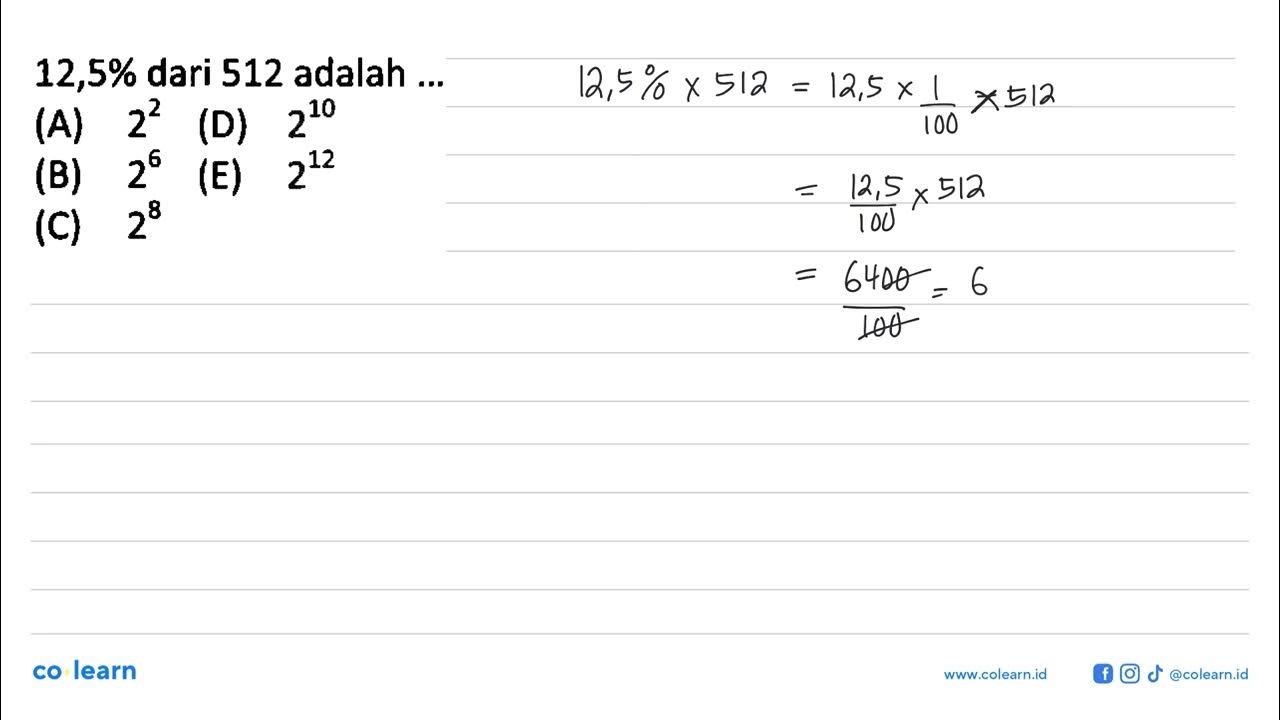 12,5% dari 512 adalah ...
(A) 2² (D) 2¹⁰
(B) 2⁶ (E) 2¹²
(C) 2⁸
12,5% × 512 = 12,5 × 1/100 × 512
= 12,5/100 × 512
= 6400/100 = 6
co·learn
www.colearn.id
@colearn.id